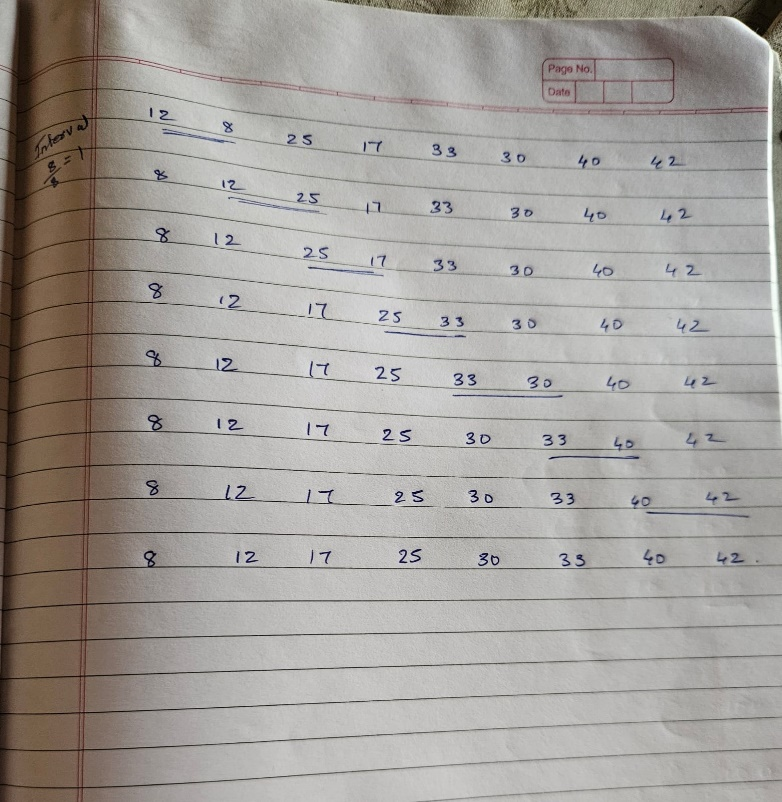 Page No.
Date
Interval
8/8 = 1
12 8 25 17 33 30 40 42
8 12 25 17 33 30 40 42
8 12 25 17 33 30 40 42
8 12 17 25 33 30 40 42
8 12 17 25 33 30 40 42
8 12 17 25 30 33 40 42
8 12 17 25 30 33 40 42
8 12 17 25 30 33 40 42.